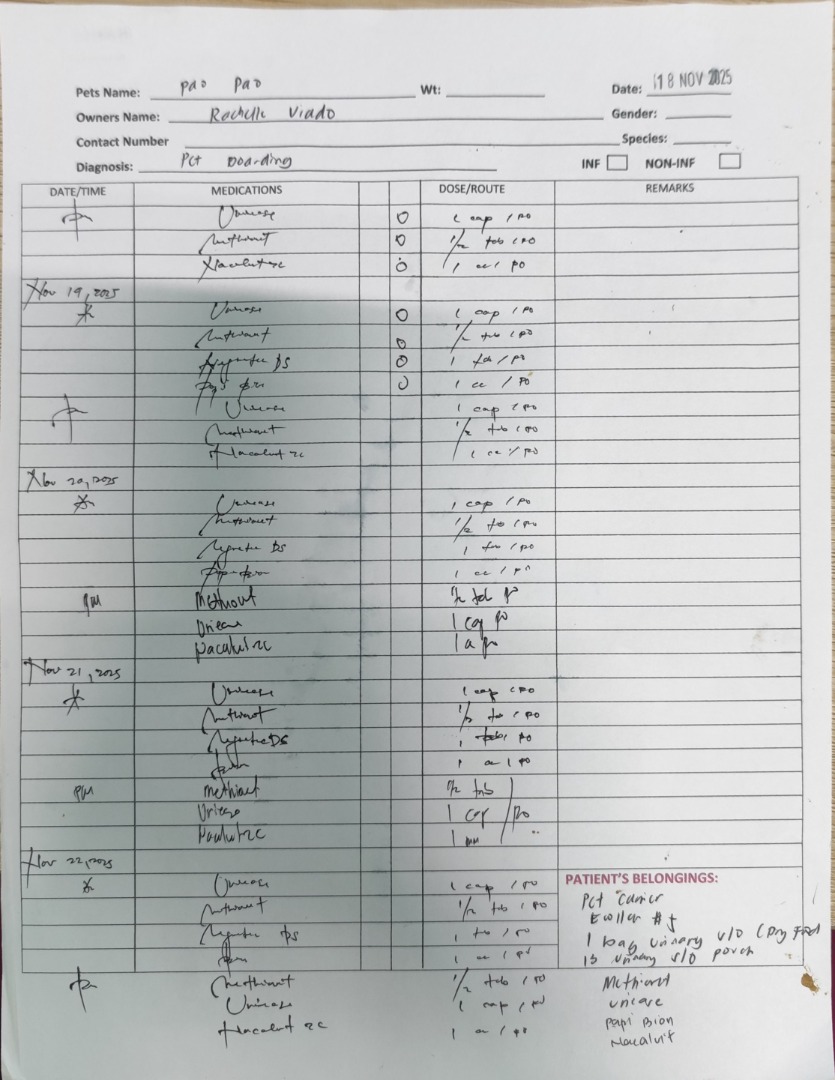 Pets Name: Pao Pao Wt: Date: 18 NOV 2025
Owners Name: Rachelle Viado Gender:
Contact Number Species:
Diagnosis: Pet Boarding INF NON-INF
DATE/TIME MEDICATIONS DOSE/ROUTE REMARKS
Uricare 1 cap / PO
Methiovet 1/2 tab / PO
Nacalvit-C 1 cc / PO
Nov 19, 2025
Uricare 1 cap / PO
Methiovet 1/2 tab / PO
DS 1 tab / PO
1 cc / PO
Uricare 1 cap / PO
Methiovet 1/2 tab / PO
Nacalvit-C 1 cc / PO
Nov 20, 2025
Uricare 1 cap / PO
Methiovet 1/2 tab / PO
DS 1 tab / PO
1 cc / PO
PM Methiovet 1/2 tab PO
Uricare 1 cap PO
Nacalvit-C 1 cc PO
Nov 21, 2025
Uricare 1 cap / PO
Methiovet 1/2 tab / PO
DS 1 tab / PO
1 cc / PO
PM Methiovet 1/2 tab
Uricare 1 cap / PO
Nacalvit-C 1
Nov 22, 2025
Uricare 1 cap / PO
Methiovet 1/2 tab / PO
DS 1 tab / PO
1 cc / PO
Methiovet 1/2 tab / PO
Uricare 1 cap / PO
Nacalvit-C 1 cc / PO
PATIENT'S BELONGINGS:
Pet Carrier
#5
1 bag urinary s/o (Dry Food
13 urinary s/o pouch
Methiovet
Uricare
Papi Bion
Nacalvit